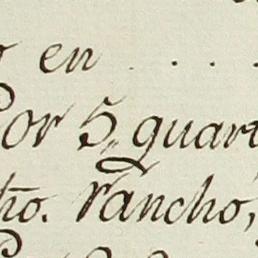 en . . .
Por 5,, quart
ho. rancho,